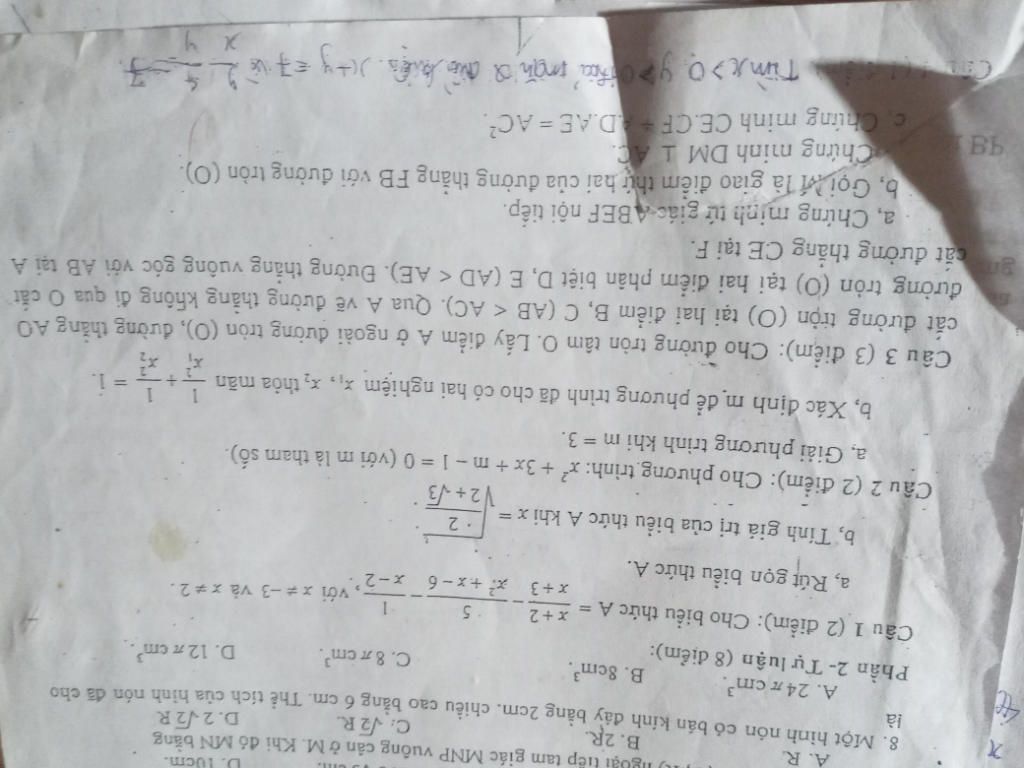 ngoại tiếp tam giác MNP vuông cân ở M. Khi đó MN bằng
D. 10cm.
A. R B. 2R. C. √2 R. D. 2√2 R
8. Một hình nón có bán kính đáy bằng 2cm. chiều cao bằng 6 cm. Thể tích của hình nón đã cho
là
A. 24 π cm³. B. 8cm³. C. 8 π cm³. D. 12 π cm³.
Phần 2- Tự luận (8 điểm):
Câu 1 (2 điểm): Cho biểu thức A = (x+2)/(x+3) − 5/(x²+x−6) − 1/(x−2), với x ≠ −3 và x ≠ 2.
a, Rút gọn biểu thức A.
b, Tính giá trị của biểu thức A khi x = √(2/(2+√3))
Câu 2 (2 điểm): Cho phương trình: x² + 3x + m − 1 = 0 (với m là tham số).
a, Giải phương trình khi m = 3.
b, Xác định m để phương trình đã cho có hai nghiệm x₁, x₂ thỏa mãn 1/x₁² + 1/x₂² = 1.
Câu 3 (3 điểm): Cho đường tròn tâm O. Lấy điểm A ở ngoài đường tròn (O), đường thẳng AO
cắt đường tròn (O) tại hai điểm B, C (AB < AC). Qua A vẽ đường thẳng không đi qua O cắt
đường tròn (O) tại hai điểm phân biệt D, E (AD < AE). Đường thẳng vuông góc với AB tại A
cắt đường thẳng CE tại F.
a, Chứng minh tứ giác ABEF nội tiếp.
b, Gọi M là giao điểm thứ hai của đường thẳng FB với đường tròn (O).
Chứng minh DM ⊥ AC.
c, Chứng minh CE.CF + AD.AE = AC².
Tìm x>0, y>0 thỏa mãn điều kiện x+y = 7 và